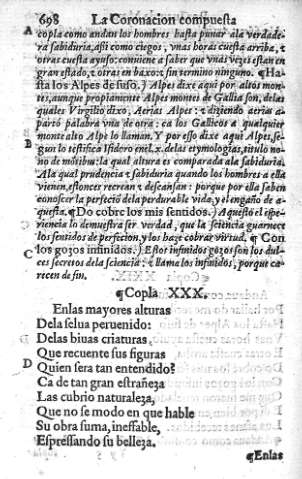 698 La Coronacion compuesta
A copla como andan los hombres hasta punar ala verdade-
ra sabiduria, assi como ciegos, vnas horas cuesta arriba, τ
otras cuesta ayuso: conuiene a saber que vnas vezes estan en
gran estado, τ otras en baxo: τ sin termino ninguno. ¶Ha
sta los Alpes de suso.) Alpes dixe aqui por altos mon-
tes, aunque propiamente Alpes montes de Gallia son, delas
quales Virgilio dixo, Aerias Alpes: τ diziendo aeria es-
paro palabra vna de otra: ca los Gallicos a qualquier
monte alto Alpe lo llaman. Y por esso dixe aqui Alpes, se-
B gun lo testifica Isidoro enel.x. delas etymologias, titulo no-
no de mõtibus: la qual altura es comparada ala sabiduria.
Ala qual prudencia τ sabiduria quando los hombres a ella
vienen, estonces recrean τ descansan: porque por ella saben
conoscer la perfeciõ dela perdurable vida, y el engaño de a-
questa. ¶Do cobre los mis sentidos.) Aquesto el espe-
riencia lo demuestra ser verdad, que la sciencia guarnece
los sentidos de perfecion, y los haze cobrar virtud. ¶Con
C los gozos infinidos.) Estos infinidos gozos son los dul-
ces secretos dela sciencia: τ llama los infinidos, porque ca-
recen de fin.
¶Copla XXX.
Enlas mayores alturas
Dela selua peruenido:
Delas biuas criaturas,
Que recuente sus figuras
D Quien sera tan entendido?
Ca de tan gran estrañeza
Las cubrio naturaleza,
Que no se modo en que hable
Su obra suma, ineffable,
Espressando su belleza.
¶Enlas